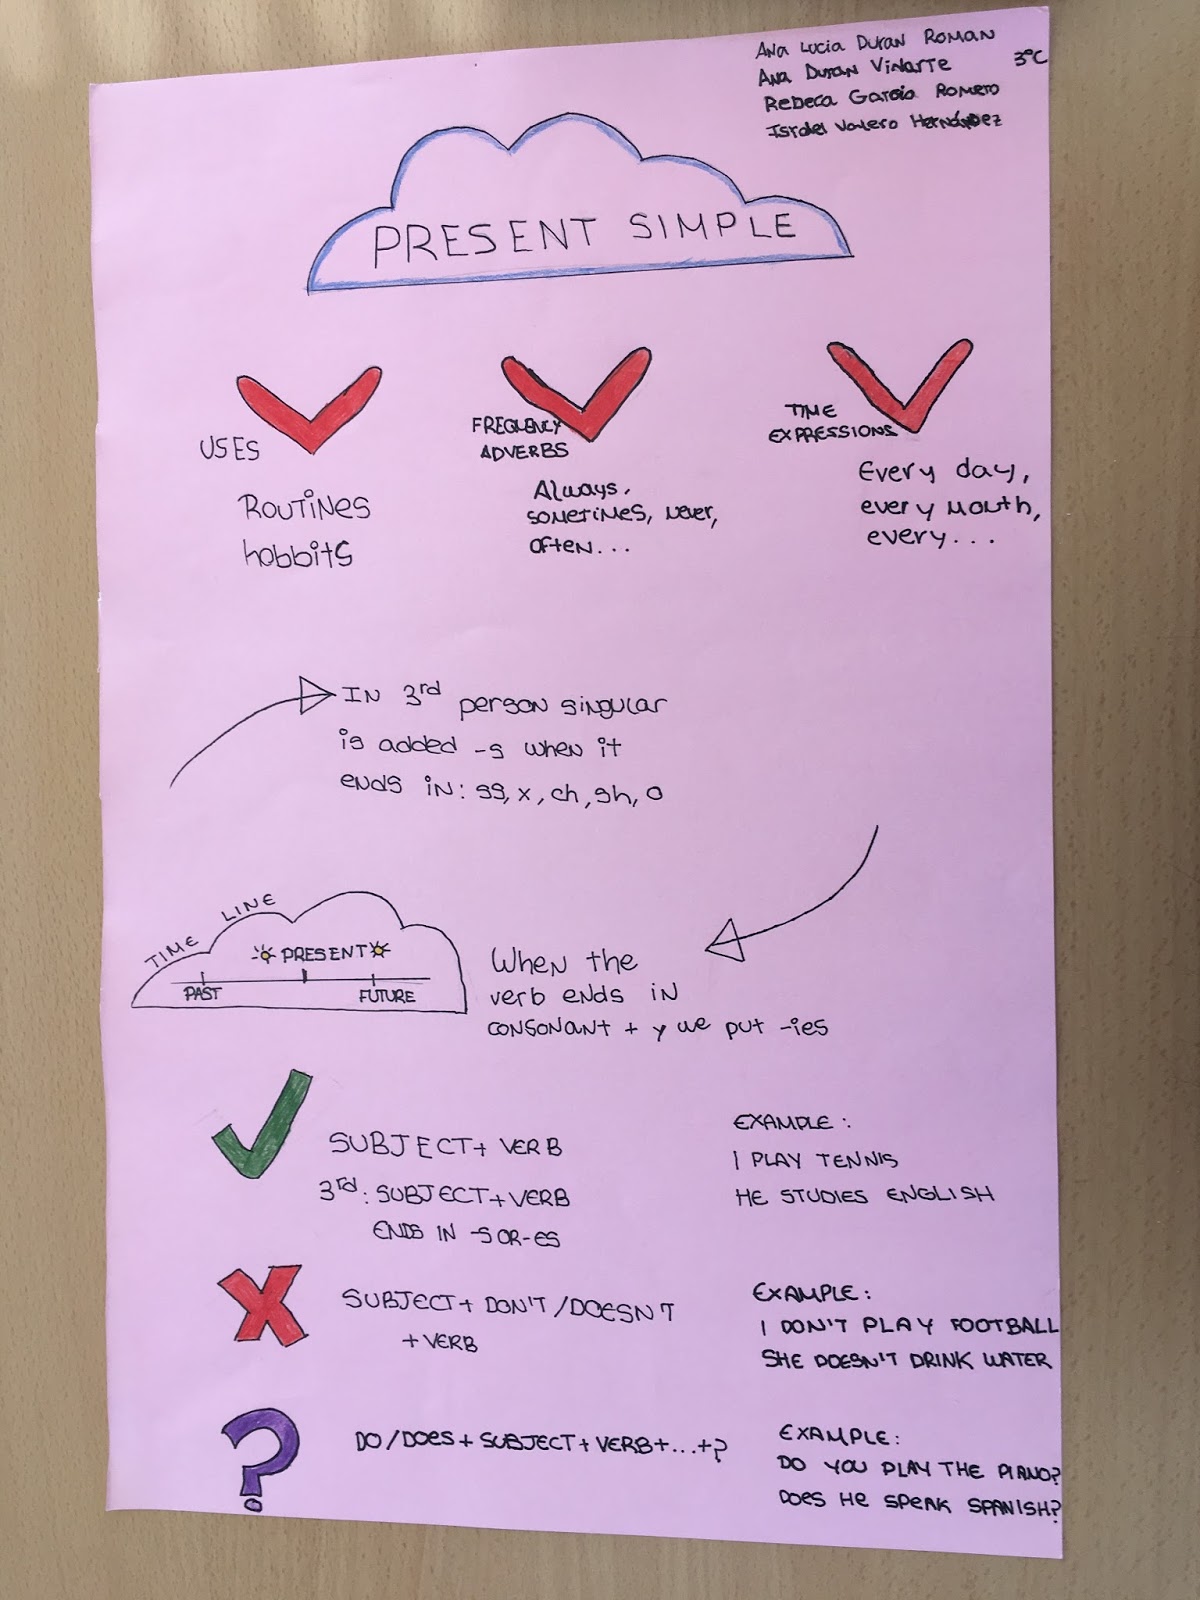 Ana Lucia Duran Roman
Ana Duran Vinarte
3ºC
Rebeca Garcia Romero
Israel Valero Hernández
PRESENT SIMPLE
USES
Routines
hobbits
FREQUENCY
ADVERBS
Always,
sometimes, never,
often...
TIME
EXPRESSIONS
Every day,
every month,
every...
In 3rd person singular
is added -s when it
ends in: ss, x, ch, sh, o
TIME LINE
PRESENT
PAST
FUTURE
When the
verb ends in
consonant + y we put -ies
SUBJECT + VERB
3rd: SUBJECT + VERB
ENDS IN -S OR -ES
EXAMPLE:
I PLAY TENNIS
HE STUDIES ENGLISH
SUBJECT + DON'T / DOESN'T
+ VERB
EXAMPLE:
I DON'T PLAY FOOTBALL
SHE DOESN'T DRINK WATER
DO / DOES + SUBJECT + VERB + ... + ?
EXAMPLE:
DO YOU PLAY THE PIANO?
DOES HE SPEAK SPANISH?